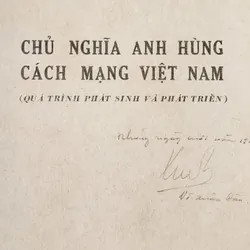 CHỦ NGHĨA ANH HÙNG
CÁCH MẠNG VIỆT NAM
(QUÁ TRÌNH PHÁT SINH VÀ PHÁT TRIỂN)
Những ngày cuối năm